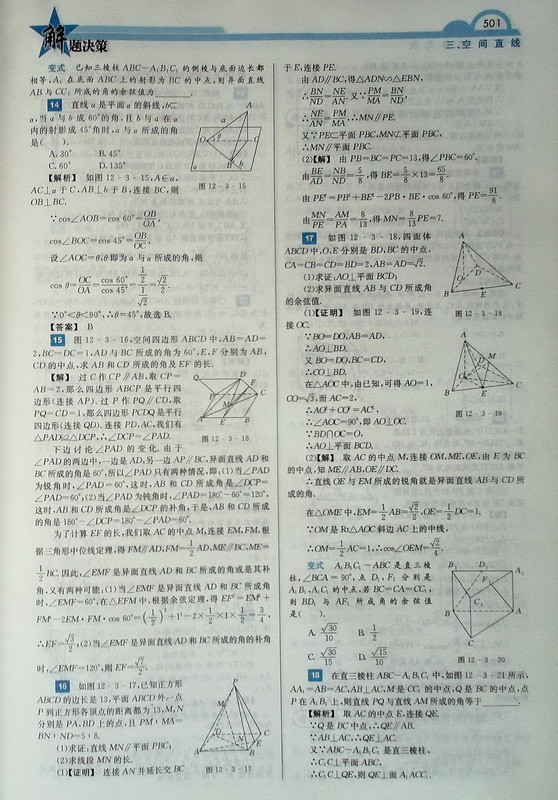 解题决策
501
三、空间直线
变式 已知三棱柱 ABC-A₁B₁C₁ 的侧棱与底面边长都
相等,A₁ 在底面 ABC 上的射影为 BC 的中点,则异面直线
AB 与 CC₁ 所成的角的余弦值为
14 直线 a 是平面 α 的斜线,b⊂
α,当 a 与 b 成 60°的角,且 b 与 a 在 α
内的射影成 45°角时,a 与 α 所成的角
是( ).
A. 30° B. 45°
C. 60° D. 135°
【解析】 如图 12-3-15,A∈a,
AC⊥α 于 C,AB⊥b 于 B,连接 BC,则
OB⊥BC.
图 12-3-15
∵cos∠AOB=cos 60°=OB/OA,
cos∠BOC=cos 45°=OB/OC,
设∠AOC=θ,θ 即为 a 与 α 所成的角,则
cos θ=OC/OA=cos 60°/cos 45°=(1/2)/(1/√2)=√2/2.
∵0°<θ<90°,∴θ=45°,故选 B.
【答案】 B
15 图 12-3-16,空间四边形 ABCD 中,AB=AD=
2,BC=DC=1,AD 与 BC 所成的角为 60°,E、F 分别为 AB、
CD 的中点,求 AB 和 CD 所成的角及 EF 的长.
【解】 过 C 作 CP∥AB,取 CP=
AB=2,那么四边形 ABCP 是平行四
边形(连接 AP). 过 P 作 PQ∥CD,取
PQ=CD=1,那么四边形 PCDQ 是平行
四边形(连接 QD),连接 PD、AC,我们有
△PAD≌△DCP,∴∠DCP=∠PAD.
图 12-3-16
下边讨论∠PAD 的变化. 由于
∠PAD 的两边中,一边是 AD,另一边 AP∥BC,异面直线 AD 和
BC 所成的角是 60°,所以∠PAD 只有两种情况,即:(1)当∠PAD
为锐角时,∠PAD=60°,这时,AB 和 CD 所成角是∠DCP=
∠PAD=60°;(2)当∠PAD 为钝角时,∠PAD=180°-60°=120°,
这时,AB 和 CD 所成角是∠DCP 的补角,于是,AB 和 CD 所成
的角是 180°-∠DCP=180°-∠PAD=60°.
为了计算 EF 的长,我们取 AC 的中点 M,连接 EM、FM,根
据三角形中位线定理,得 FM∥AD,FM=1/2AD,ME∥BC,ME=
1/2BC. 因此,∠EMF 是异面直线 AD 和 BC 所成的角或是其补
角,又有两种可能:(1)当∠EMF 是异面直线 AD 和 BC 所成角
时,∠EMF=60°,在△EFM 中,根据余弦定理,得 EF²=EM²+
FM²-2EM·FM·cos 60°=(1/2)²+1²-2×1/2×1×1/2=3/4,
∴EF=√3/2;(2)当∠EMF 是异面直线 AD 和 BC 所成的角的补角
时,∠EMF=120°,则 EF=√7/2.
16 如图 12-3-17,已知正方形
ABCD 的边长是 13,平面 ABCD 外一点
P 到正方形各顶点的距离都为 13,M、N
分别是 PA、BD 上的点,且 PM∶MA=
BN∶ND=5∶8.
(1)求证:直线 MN∥平面 PBC;
(2)求线段 MN 的长.
(1)【证明】 连接 AN 并延长交 BC
图 12-3-17
于 E,连接 PE.
由 AD∥BC,得△ADN∽△EBN,
∴BN/ND=NE/AN,又∵PM/MA=BN/ND,
∴NE/AN=PM/MA,∴MN∥PE.
又∵PE⊂平面 PBC,MN⊄平面 PBC,
∴MN∥平面 PBC.
(2)【解】 由 PB=BC=PC=13,得∠PBC=60°.
由BE/AD=BN/ND=5/8,得 BE=5/8×13=65/8.
由 PE²=PB²+BE²-2PB·BE·cos 60°,得 PE=91/8.
由MN/PE=AM/PA=8/13,得 MN=8/13PE=7.
17 如图 12-3-18,四面体
ABCD 中,O、E 分别是 BD、BC 的中点,
CA=CB=CD=BD=2,AB=AD=√2.
(1)求证:AO⊥平面 BCD;
(2)求异面直线 AB 与 CD 所成角
的余弦值.
图 12-3-18
(1)【证明】 如图 12-3-19,连
接 OC.
∵BO=DO,AB=AD,
∴AO⊥BD.
又 BO=DO,BC=CD,
∴CO⊥BD.
在△AOC 中,由已知,可得 AO=1,
CO=√3,而 AC=2,
∴AO²+CO²=AC²,
∴∠AOC=90°,即 AO⊥OC.
∵BD∩OC=O,
∴AO⊥平面 BCD.
图 12-3-19
(2)【解】 取 AC 的中点 M,连接 OM、ME、OE,由 E 为 BC
的中点,知 ME∥AB,OE∥DC.
∴直线 OE 与 EM 所成的锐角就是异面直线 AB 与 CD 所
成的角.
在△OME 中,EM=1/2AB=√2/2,OE=1/2DC=1,
∵OM 是 Rt△AOC 斜边 AC 上的中线,
∴OM=1/2AC=1,∴cos∠OEM=√2/4.
变式 A₁B₁C₁-ABC 是直三棱
柱,∠BCA=90°,点 D₁、F₁ 分别是
A₁B₁、A₁C₁ 的中点,若 BC=CA=CC₁,
则 BD₁ 与 AF₁ 所成角的余弦值
是( ).
A. √30/10 B. 1/2
C. √30/15 D. √15/10
图 12-3-20
18 在直三棱柱 ABC-A₁B₁C₁ 中,如图 12-3-21 所示,
AA₁=AB=AC,AB⊥AC,M 是 CC₁ 的中点,Q 是 BC 的中点,点
P 在 A₁B₁ 上,则直线 PQ 与直线 AM 所成的角等于
【解析】 取 AC 的中点 E,连接 QE.
∵Q 是 BC 中点,∴QE∥AB.
∵AB⊥AC,∴QE⊥AC.
又∵ABC-A₁B₁C₁ 是直三棱柱,
∴C₁C⊥平面 ABC,
∴C₁C⊥QE,则 QE⊥面 A₁ACC₁.